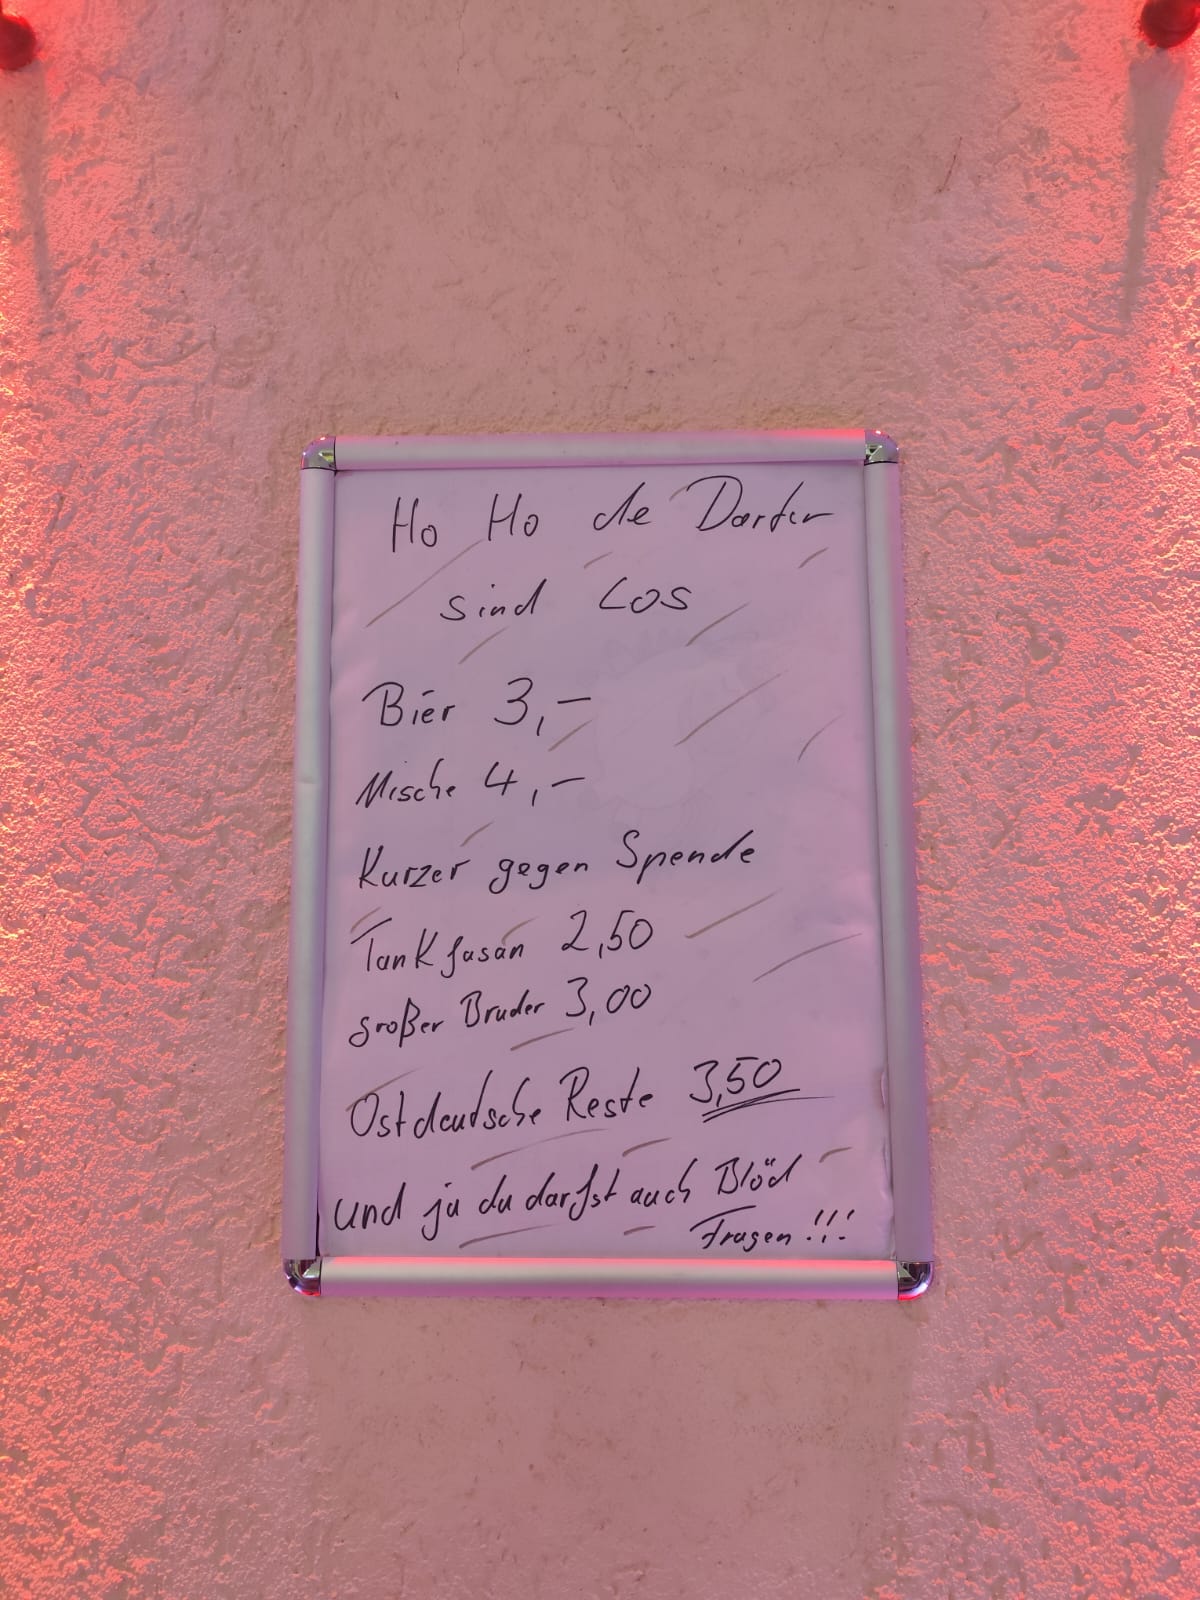 Ho Ho de Dartur
sind Los
Bier 3,-
Mische 4,-
Kurzer gegen Spende
Tankfasan 2,50
großer Bruder 3,00
Ostdeutsche Reste 3,50
und ja du darfst auch Blöd
Fragen!!!